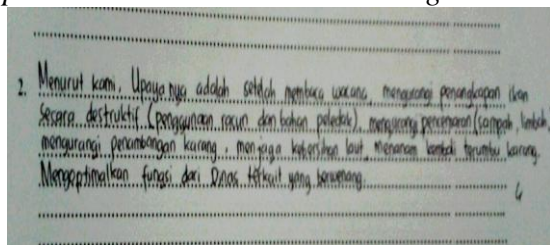 2. Menurut kami, Upaya nya adalah setelah membaca wacana, mengurangi penangkapan ikan
secara destruktif (penggunaan racun dan bahan peledak), mengurangi pencemaran (sampah, limbah,
mengurangi penambangan karang, menjaga kebersihan laut, menanam kembali terumbu karang.
Mengoptimalkan fungsi dari Dinas terkait yang berwenang.
4